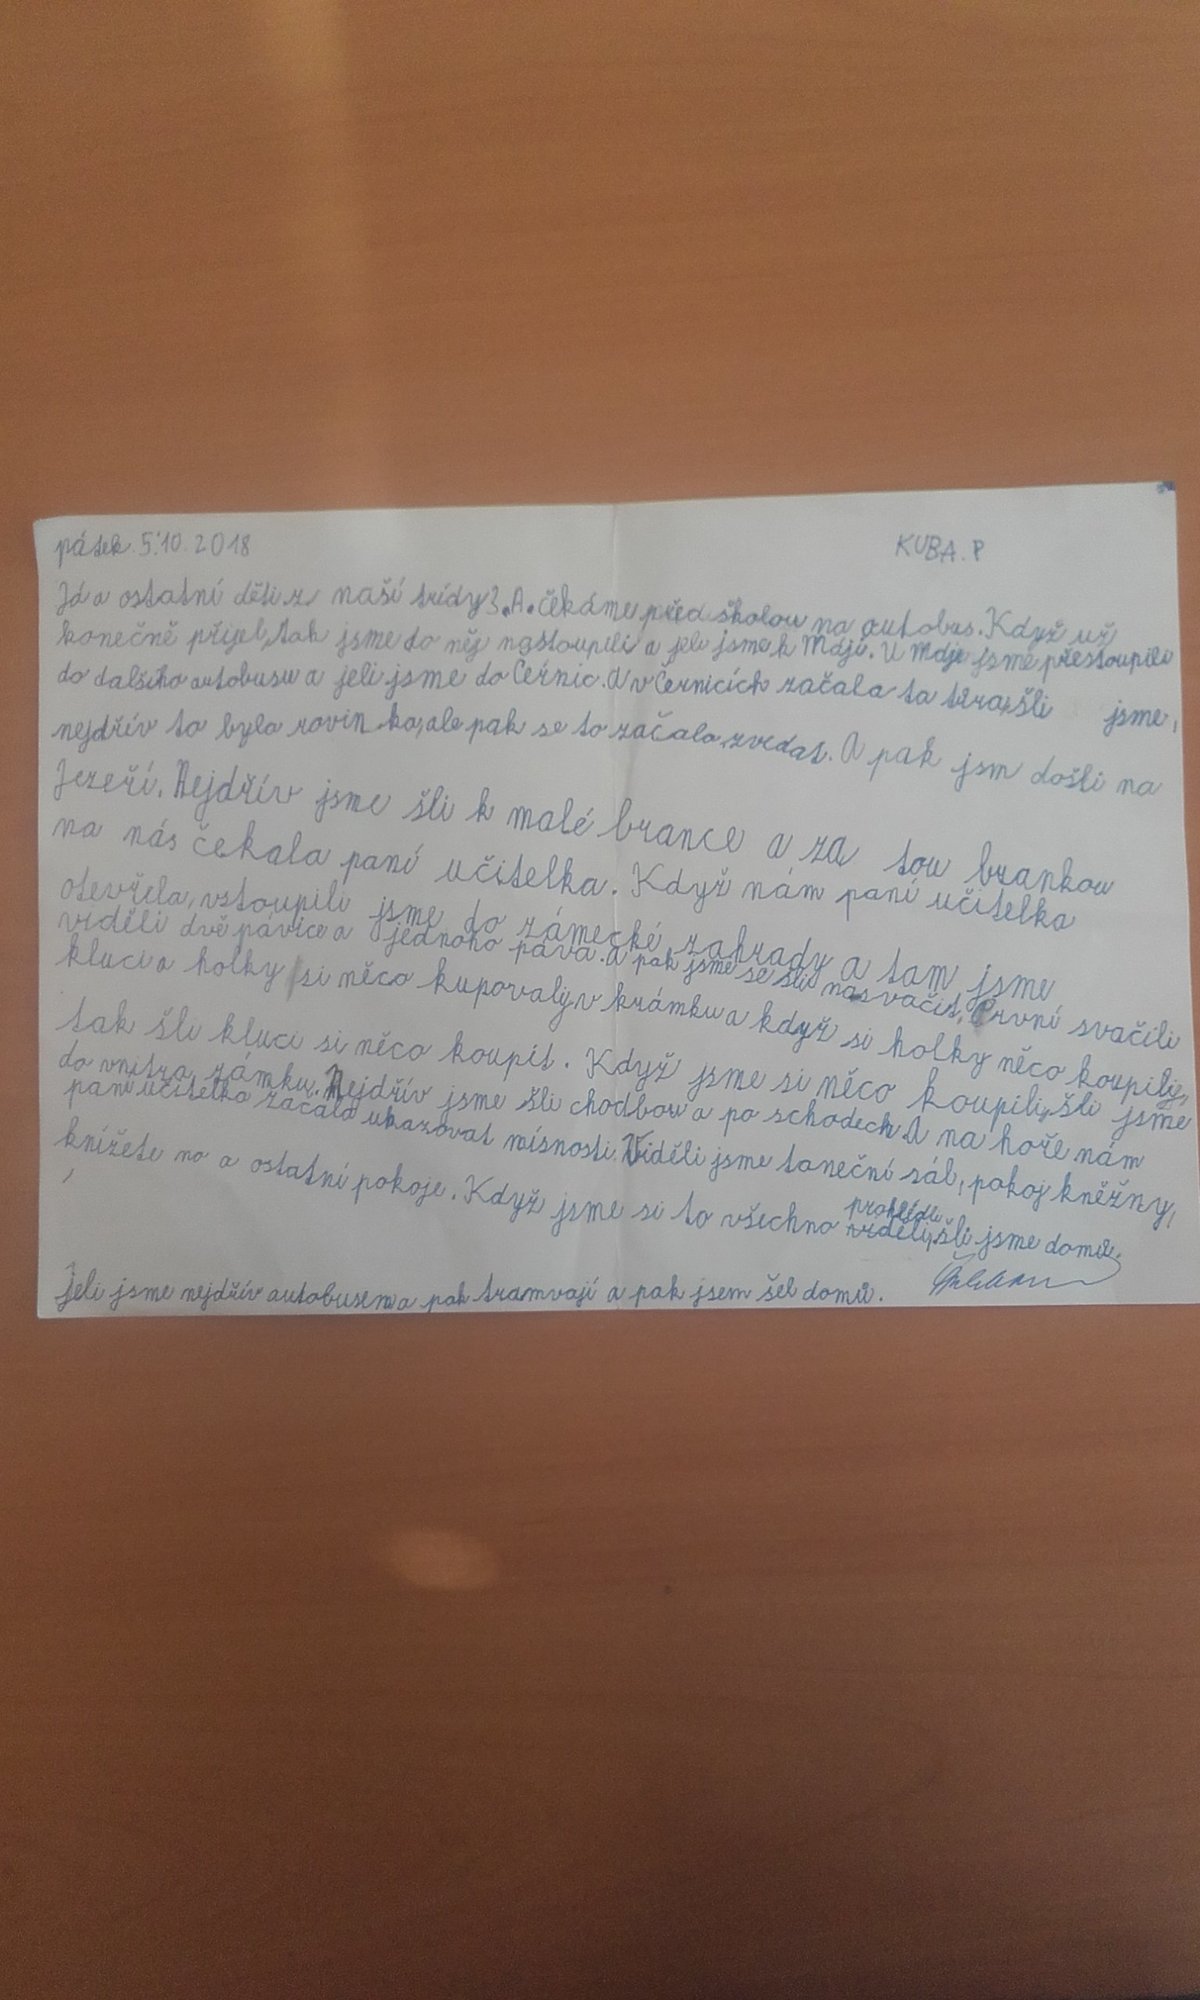 pátek 5.10.2018
KUBA. P
Já a ostatní děti z naší třídy 3.A. čekáme před školou na autobus. Když už
konečně přijel, tak jsme do něj nastoupili a jeli jsme k Máji. U Máje jsme přestoupili
do dalšího autobusu a jeli jsme do Černic. A v Černicích začala ta túra, šli jsme,
nejdřív to byla rovin ka, ale pak se to začalo zvedat. A pak jsm došli na
Jezeří. Nejdřív jsme šli k malé brance a za tou brankou
na nás čekala paní učitelka. Když nám paní učitelka
otevřela, vstoupili jsme do zámecké zahrady a tam jsme
viděli dvě pávice a jednoho páva. A pak jsme se šli nasvačit. První svačili
kluci a holky si něco kupovaly, v krámku a když si holky něco koupily,
tak šli kluci si něco koupit. Když jsme si něco koupili, šli jsme
do vnitra zámku. Nejdřív jsme šli chodbou a po schodech. A na hoře nám
paní učitelka začala ukazovat mísnosti. Viděli jsme taneční sál, pokoj kněžny,
knížete no a ostatní pokoje. Když jsme si to všechno prohlédli, šli jsme domů.
jeli jsme nejdřív autobusem a pak tramvají a pak jsem šel domů.